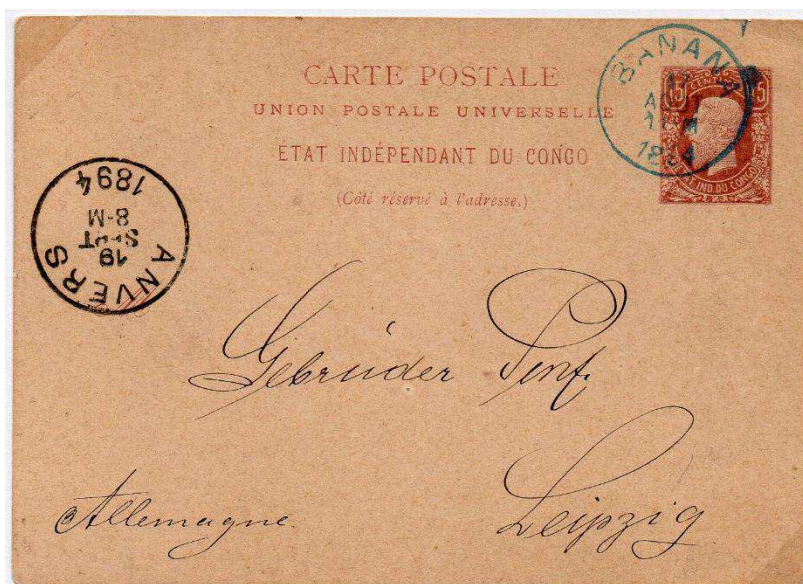 CARTE POSTALE
UNION POSTALE UNIVERSELLE
ÉTAT INDÉPENDANT DU CONGO
(Côté réservé à l'adresse.)
BANANA
1894
15
IND. DU CONGO
ANVERS
19
SEPT
8-M
1894
Gebrüder Senf.
Leipzig
Allemagne.